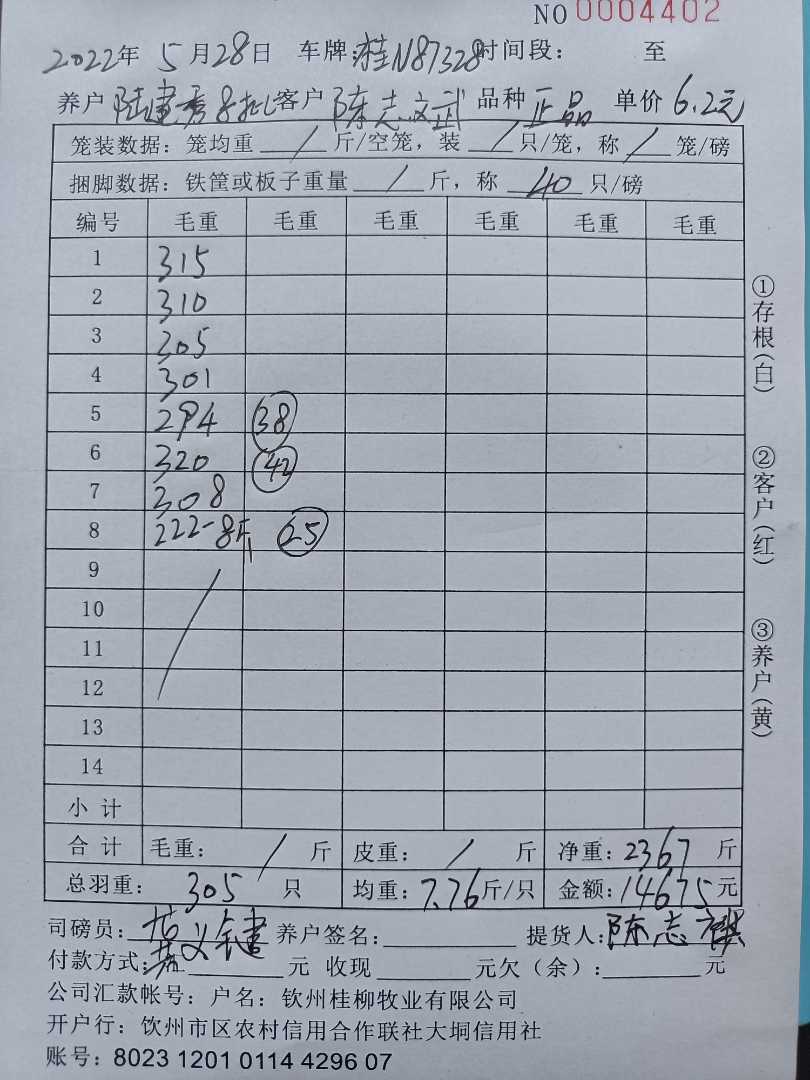 NO 0004402
2022年 5月28日 车牌:桂N87328时间段: 至
养户 陆建秀8批 客户 陈志文武 品种 正品 单价 6.2元
笼装数据: 笼均重 / 斤/空笼, 装 / 只/笼, 称 / 笼/磅
捆脚数据: 铁筐或板子重量 / 斤, 称 40 只/磅
编号 毛重 毛重 毛重 毛重 毛重 毛重
1 315
2 310
3 305
4 301
5 294 38
6 320 42
7 308
8 222-8斤 25
9
10
11
12
13
14
小计
合计 毛重: / 斤 皮重: / 斤 净重: 2367 斤
总羽重: 305 只 均重: 7.76斤/只 金额: 14675元
司磅员: 养户签名: 提货人: 陈志祺
付款方式: 元 收现 元欠(余): 元
公司汇款帐号: 户名: 钦州桂柳牧业有限公司
开户行: 钦州市区农村信用合作联社大垌信用社
账号: 8023 1201 0114 4296 07
①存根(白)
②客户(红)
③养户(黄)